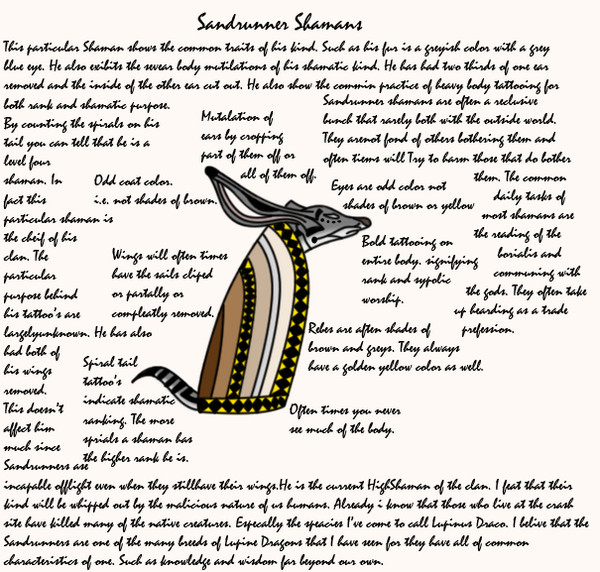 Sandrunner Shamans
This particular Shaman shows the common traits of his kind. Such as his fur is a greyish color with a grey
blue eye. He also exibits the sevear body mutilations of his shamatic kind. He has had two thirds of one ear
removed and the inside of the other ear cut out. He also show the commin practice of heavy body tattooing for
both rank and shamatic purpose.
By counting the spirals on his
tail you can tell that he is a
level four
shaman. In
fact this
particular shaman is
the cheif of his
clan. The
particular
purpose behind
his tattoo's are
largelyunknown. He has also
had both of
his wings
removed.
This doesn't
affect him
much since
Sandrunners are
incapable offlight even when they stillhave their wings.He is the current HighShaman of the clan. I feat that their
kind will be whipped out by the malicious nature of us humans. Already i know that those who live at the crash
site have killed many of the native creatures. Especally the speacies I've come to call Lupinus Draco. I belive that the
Sandrunners are one of the many breeds of Lupine Dragons that I have seen for they have all of common
characteristics of one. Such as knowledge and wisdom far beyond our own.
Mutalation of
ears by cropping
part of them off or
all of them off.
Sandrunner shamans are often a reclusive
bunch that rarely both with the outside world.
They arenot fond of others bothering them and
often tiems will Try to harm those that do bother
them. The common
daily tasks of
most shamans are
the reading of the
borialis and
communing with
the gods. They often take
up hearding as a trade
prefession.
Odd coat color.
i.e. not shades of brown.
Eyes are odd color not
shades of brown or yellow
Wings will often times
have the sails cliped
or partally or
compleatly removed.
Bold tattooing on
entire body. signifying
rank and sypolic
worship.
Robes are aften shades of
brown and greys. They always
have a golden yellow color as well.
Spiral tail
tattoo's
indicate shamatic
ranking. The more
sprials a shaman has
the higher rank he is.
Often times you never
see much of the body.